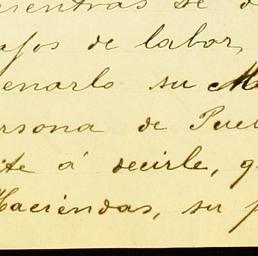 mientras se d
ajos de labor,
enarlo su Ma
ersona de Pueb
te á decirle, q
Haciendas, su p